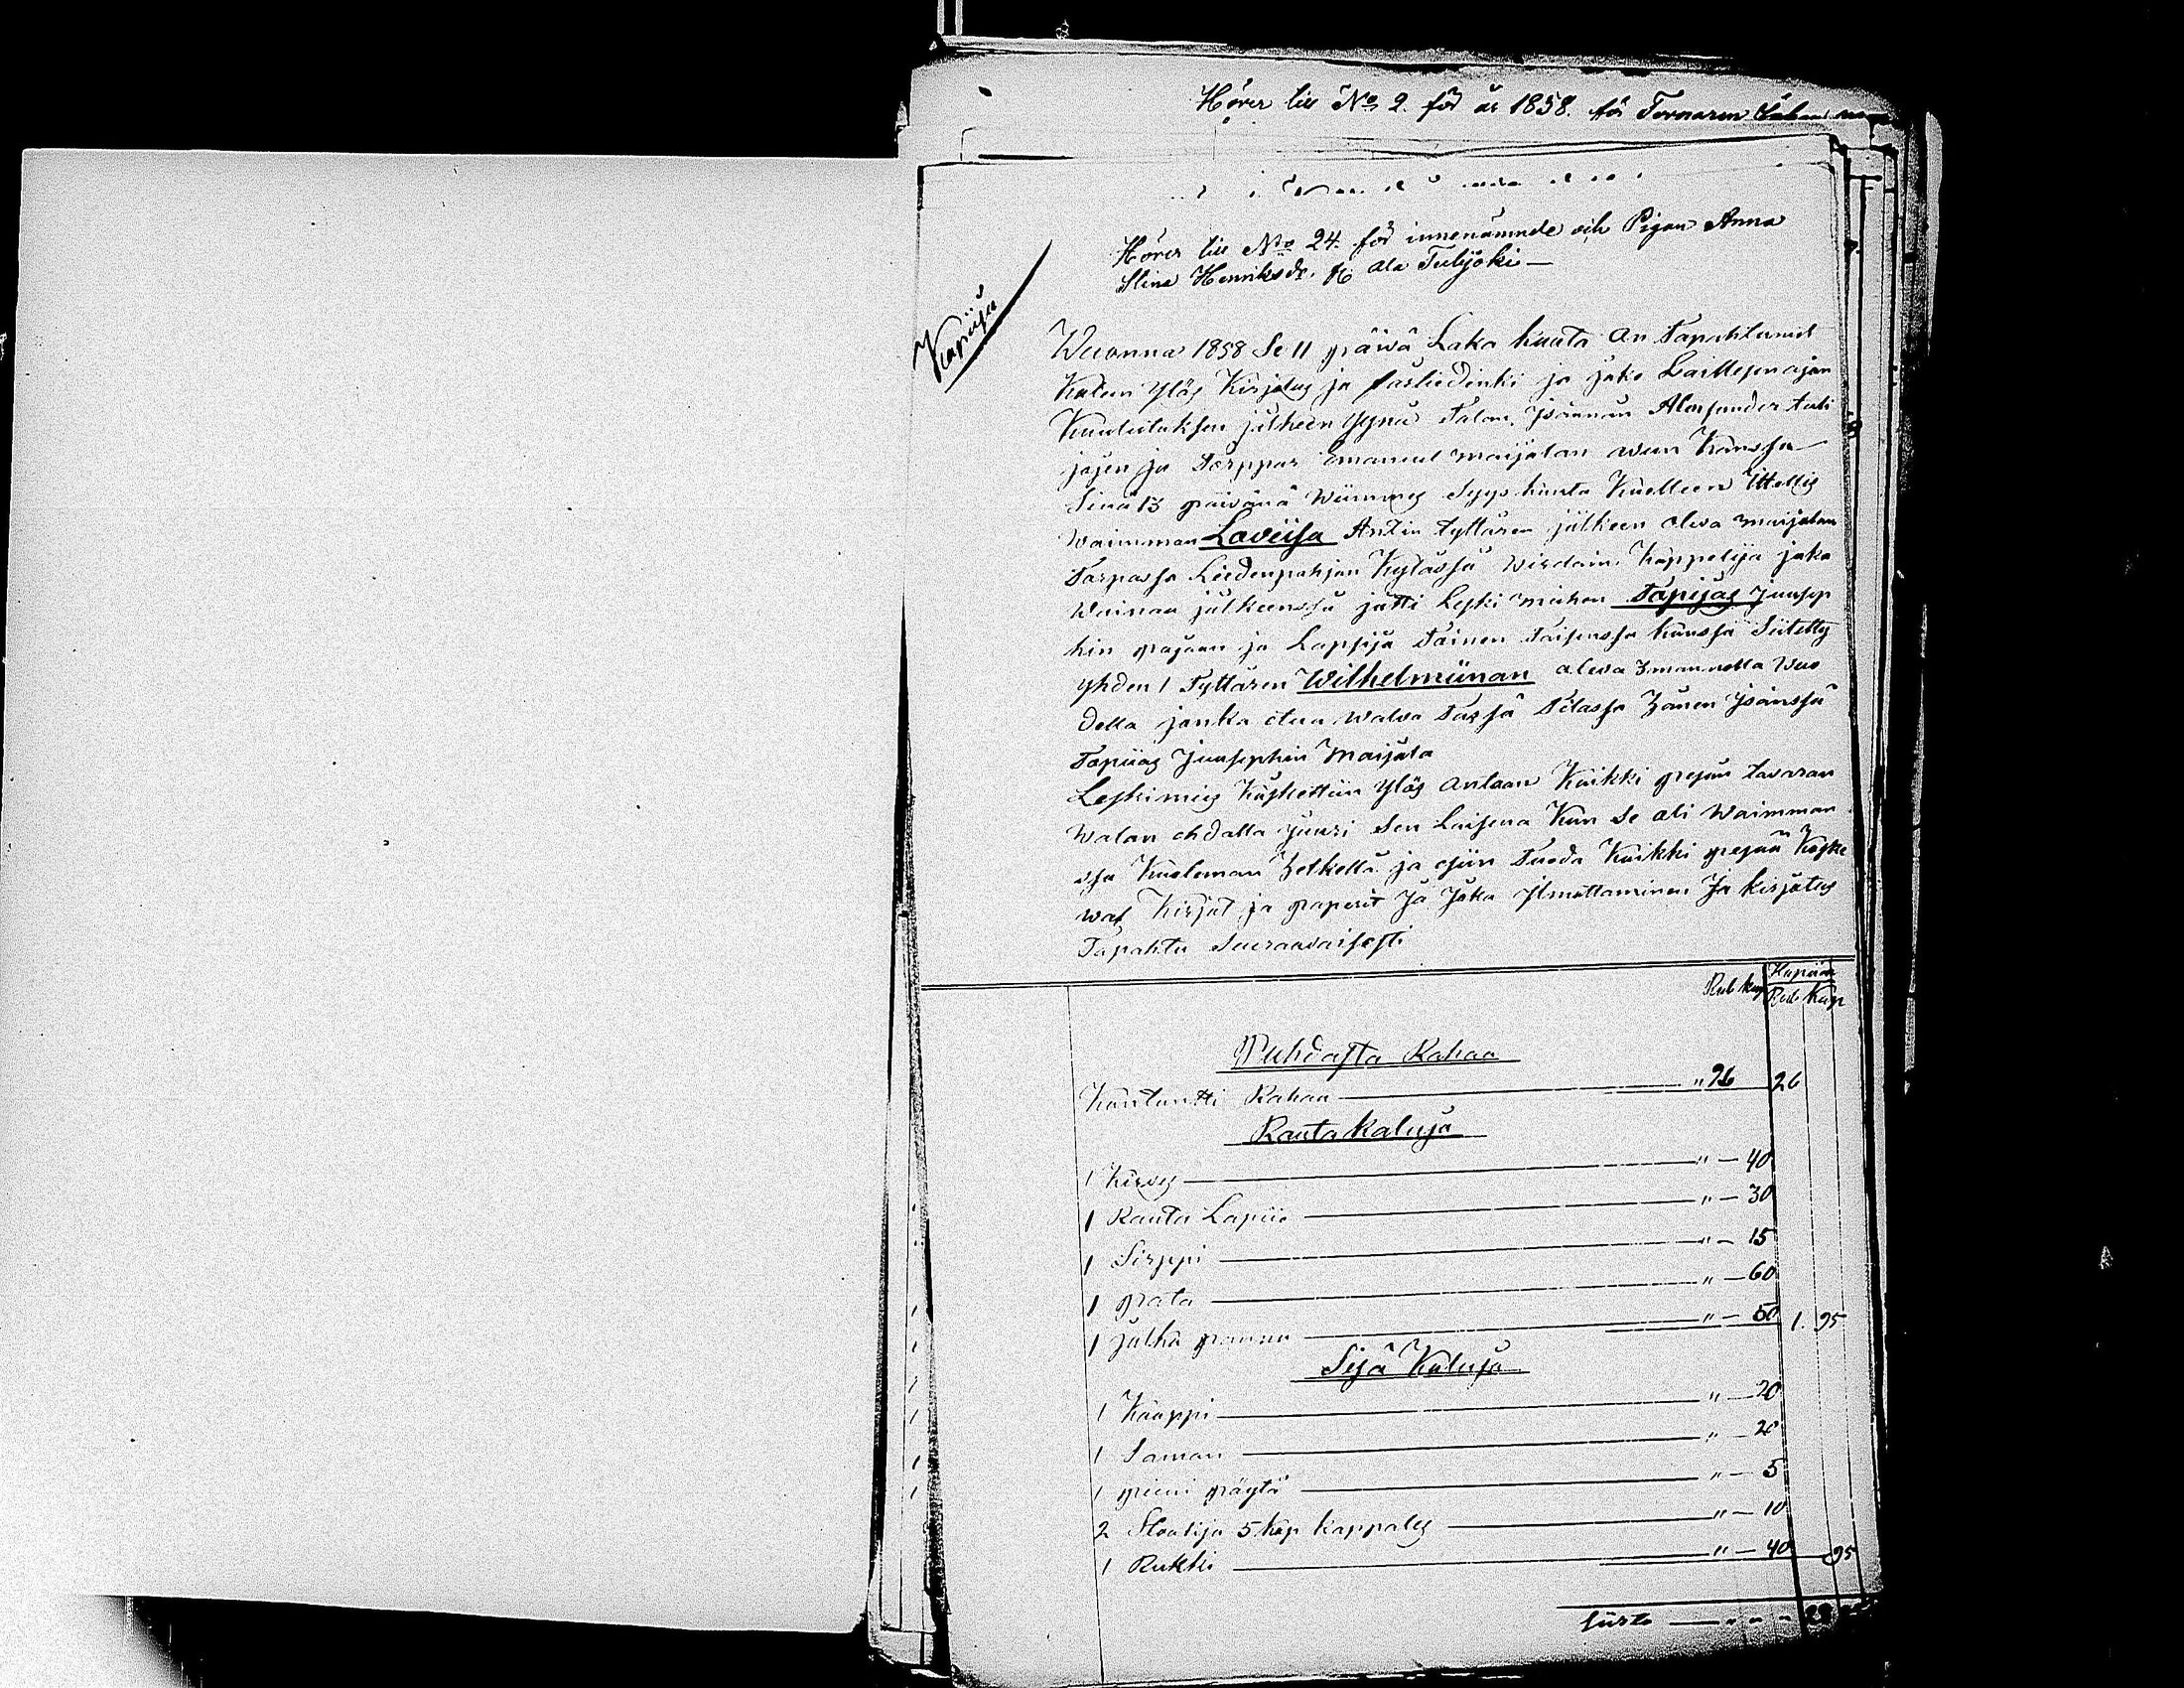 Hörer till No 2. för år 1858. för Torparen
Hörer till No 24. för innenämnde och Pigan Anna
Stina Henriksdr. fr Ala Tulijoki —
Kapiija
Wuonna 1858 Se 11 päivä Loka kuuta On Tapahtunut
Kalun Ylös Kirjotus ja farliedinki ja jako Laillisen ajan
Kuulutuksen jälkeen Talon Isännän Alexsander
jasen ja Torppar Emanuel Maijalan wiun Kanssa
Sinä 13 päivänä Wiimmes Syys kuuta Kuolleen Ittellis
Waimman Loviisa Antin tyttären jälkeen oleva Maijalan
Torpassa Liedenpohjan Kylässä Wirdain Kappelija joka
Wainaa jälkeenssä jätti Leski miehen Tapijas Juusep
hin pojaan ja Lapsija Toinen Toisenssa kanssa Siitetty
yhden 1 Tyttären Wilhelmiinan oleva 3mannella Wuo
della jonka etua Walvo Tässä Tilassa Hänen Isänssä
Tapiias Juusephin Maijala
Leskimies Käskettiin Ylös antaan Kaikki pesän tavaran
Walan ehdolla Juuri Sen Laisena Kun Se oli Waimman
sa Kuoleman Hetkellä ja esiin Tuoda Kaikki pesää Koske
wat Kirjat ja paperit Ja Joka Ilmottaminen Ja kirjotus
Tapahtu Seuraavaisesti
Rub kop Kopian
Rub Kop
Puhdasta Rahaa
Kontantti Rahaa — " 26 26
Rauta Kaluja
1 Kirves — " — 40
1 Rauta Lapiio — " — 30
1 Sirppi — " — 15
1 pata — " — 60
1 jalka pannu — " — 50 1. 95
Sisä Kaluja
1 Kaappi — " — 20
1 Saman — " — 20
1 pieni pöytä — " — 5
2 Stoolija 5 kop kappales — " — 10
1 Rukki — " — 40 95
Siirto — " — "